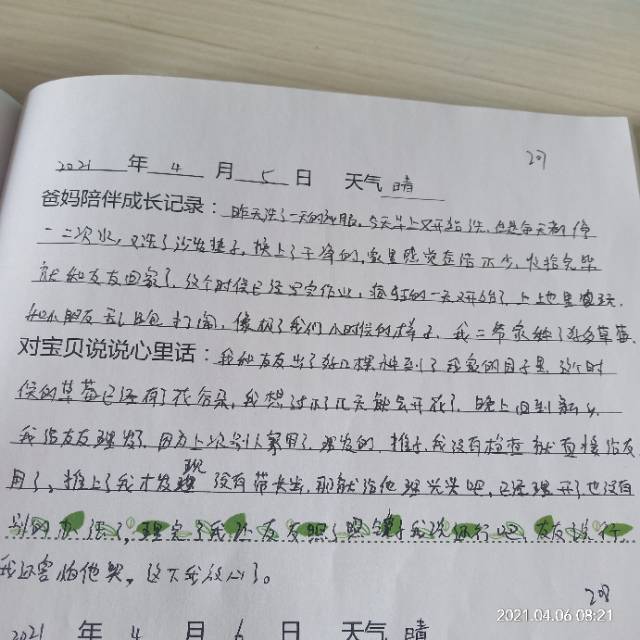 207
2021 年 4 月 5 日 天气 晴
爸妈陪伴成长记录：昨天洗了一天的衣服，今天早上又开始洗，但是每天都停
一二次水，又洗了沙发垫子，换上了干净的，家里感觉整洁不少，收拾完毕
就和友友回家了，这个时候已经写完作业，疯狂的一天又开始了，上地里去玩，
和小朋友丢土包打闹，像极了我们小时候的样子，我二爷家种了好多草莓，
对宝贝说说心里话：我和友友出了好几棵种到了我家的园子里，这个时
候的草莓已经有了花谷朵，我想过不了几天就会开花了，晚上回到新
我给友友理发了，因为上次别人家用了理发的推子，我没有检查就直接给友
用了，推上了我才发现没有带卡尺，那就给他理光头吧，已经理开了也没有
别的办法了，理完了我让友友照了照镜子我说还行吧，友友说行
我还害怕他哭，这下我放心了。
208
2021.04.06 08:21
2021 年 4 月 6 日 天气 晴